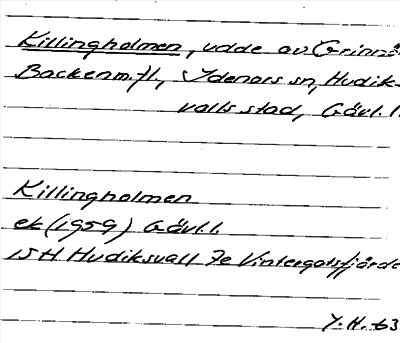 Killingholmen, udde av Grinnä
Backen m.fl., Idenors sn, Hudik-
valls stad, Gävl.l.
Killingholmen
ek (1959) Gävl.l.
15H Hudiksvall 7e Vintergatsfjärde
Y.H. 63